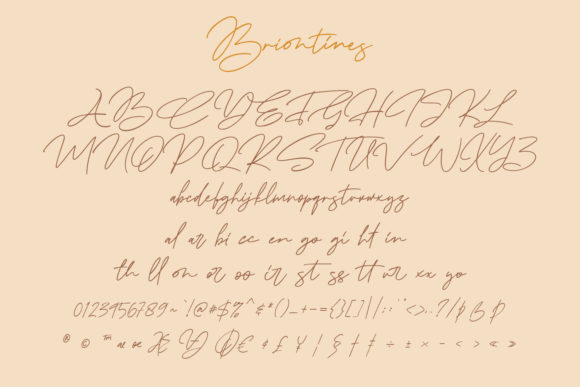 Briontines
ABCDEFGHIJKL
MNOPQRSTUVWXYZ
abcdefghijklmnopqrstuvwxyz
al ar bi cc en go gi ht in
th ll on or oo ir st ss tt ur xx yo
0123456789~`!@#$%^&*()_+-={}[]|/:;¨<>..?/þßÞ
® © ™ æ œ Æ Ð Œ ¢ £ ¥ ¦ § † ‡ ÷ ± × - < > « »